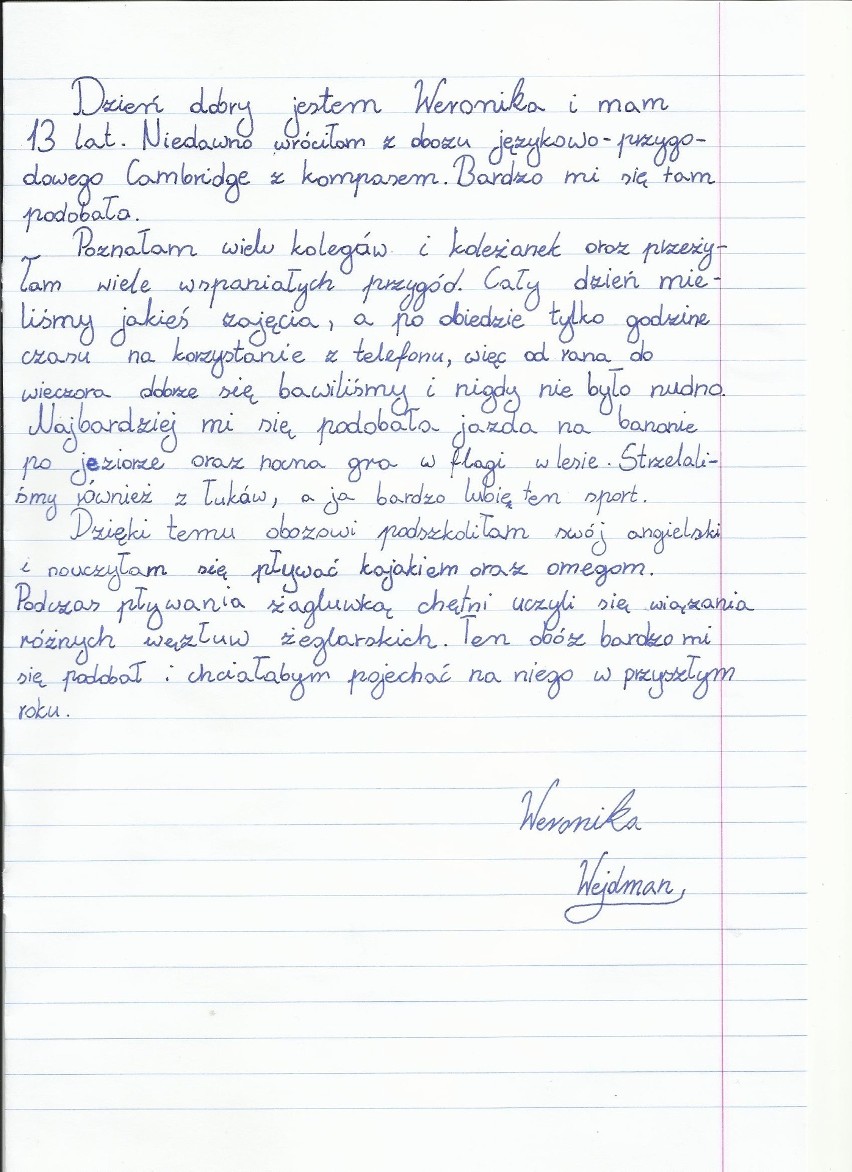 Dzień dobry jestem Weronika i mam
13 lat. Niedawno wróciłam z obozu językowo-przygo-
dowego Cambridge z kompasem. Bardzo mi się tam
podobała.
Poznałam wielu kolegów i koleżanek oraz przeży-
łam wiele wspaniałych przygód. Cały dzień mie-
liśmy jakieś zajęcia, a po obiedzie tylko godzine
czasu na korzystanie z telefonu, więc od rana do
wieczora dobrze się bawiliśmy i nigdy nie było nudno.
Najbardziej mi się podobała jazda na bananie
po jeziorze oraz nocna gra w flagi w lesie. Strzelali-
śmy również z łuków, a ja bardzo lubię ten sport.
Dzięki temu obozowi podszkoliłam swój angielski
i nauczyłam się pływać kajakiem oraz omegom.
Podczas pływania żagluwką chętni uczyli się wiązania
różnych węzłuw żeglarskich. Ten obóz bardzo mi
się podobał i chciałabym pojechać na niego w przyszłym
roku.
Weronika
Wejdman